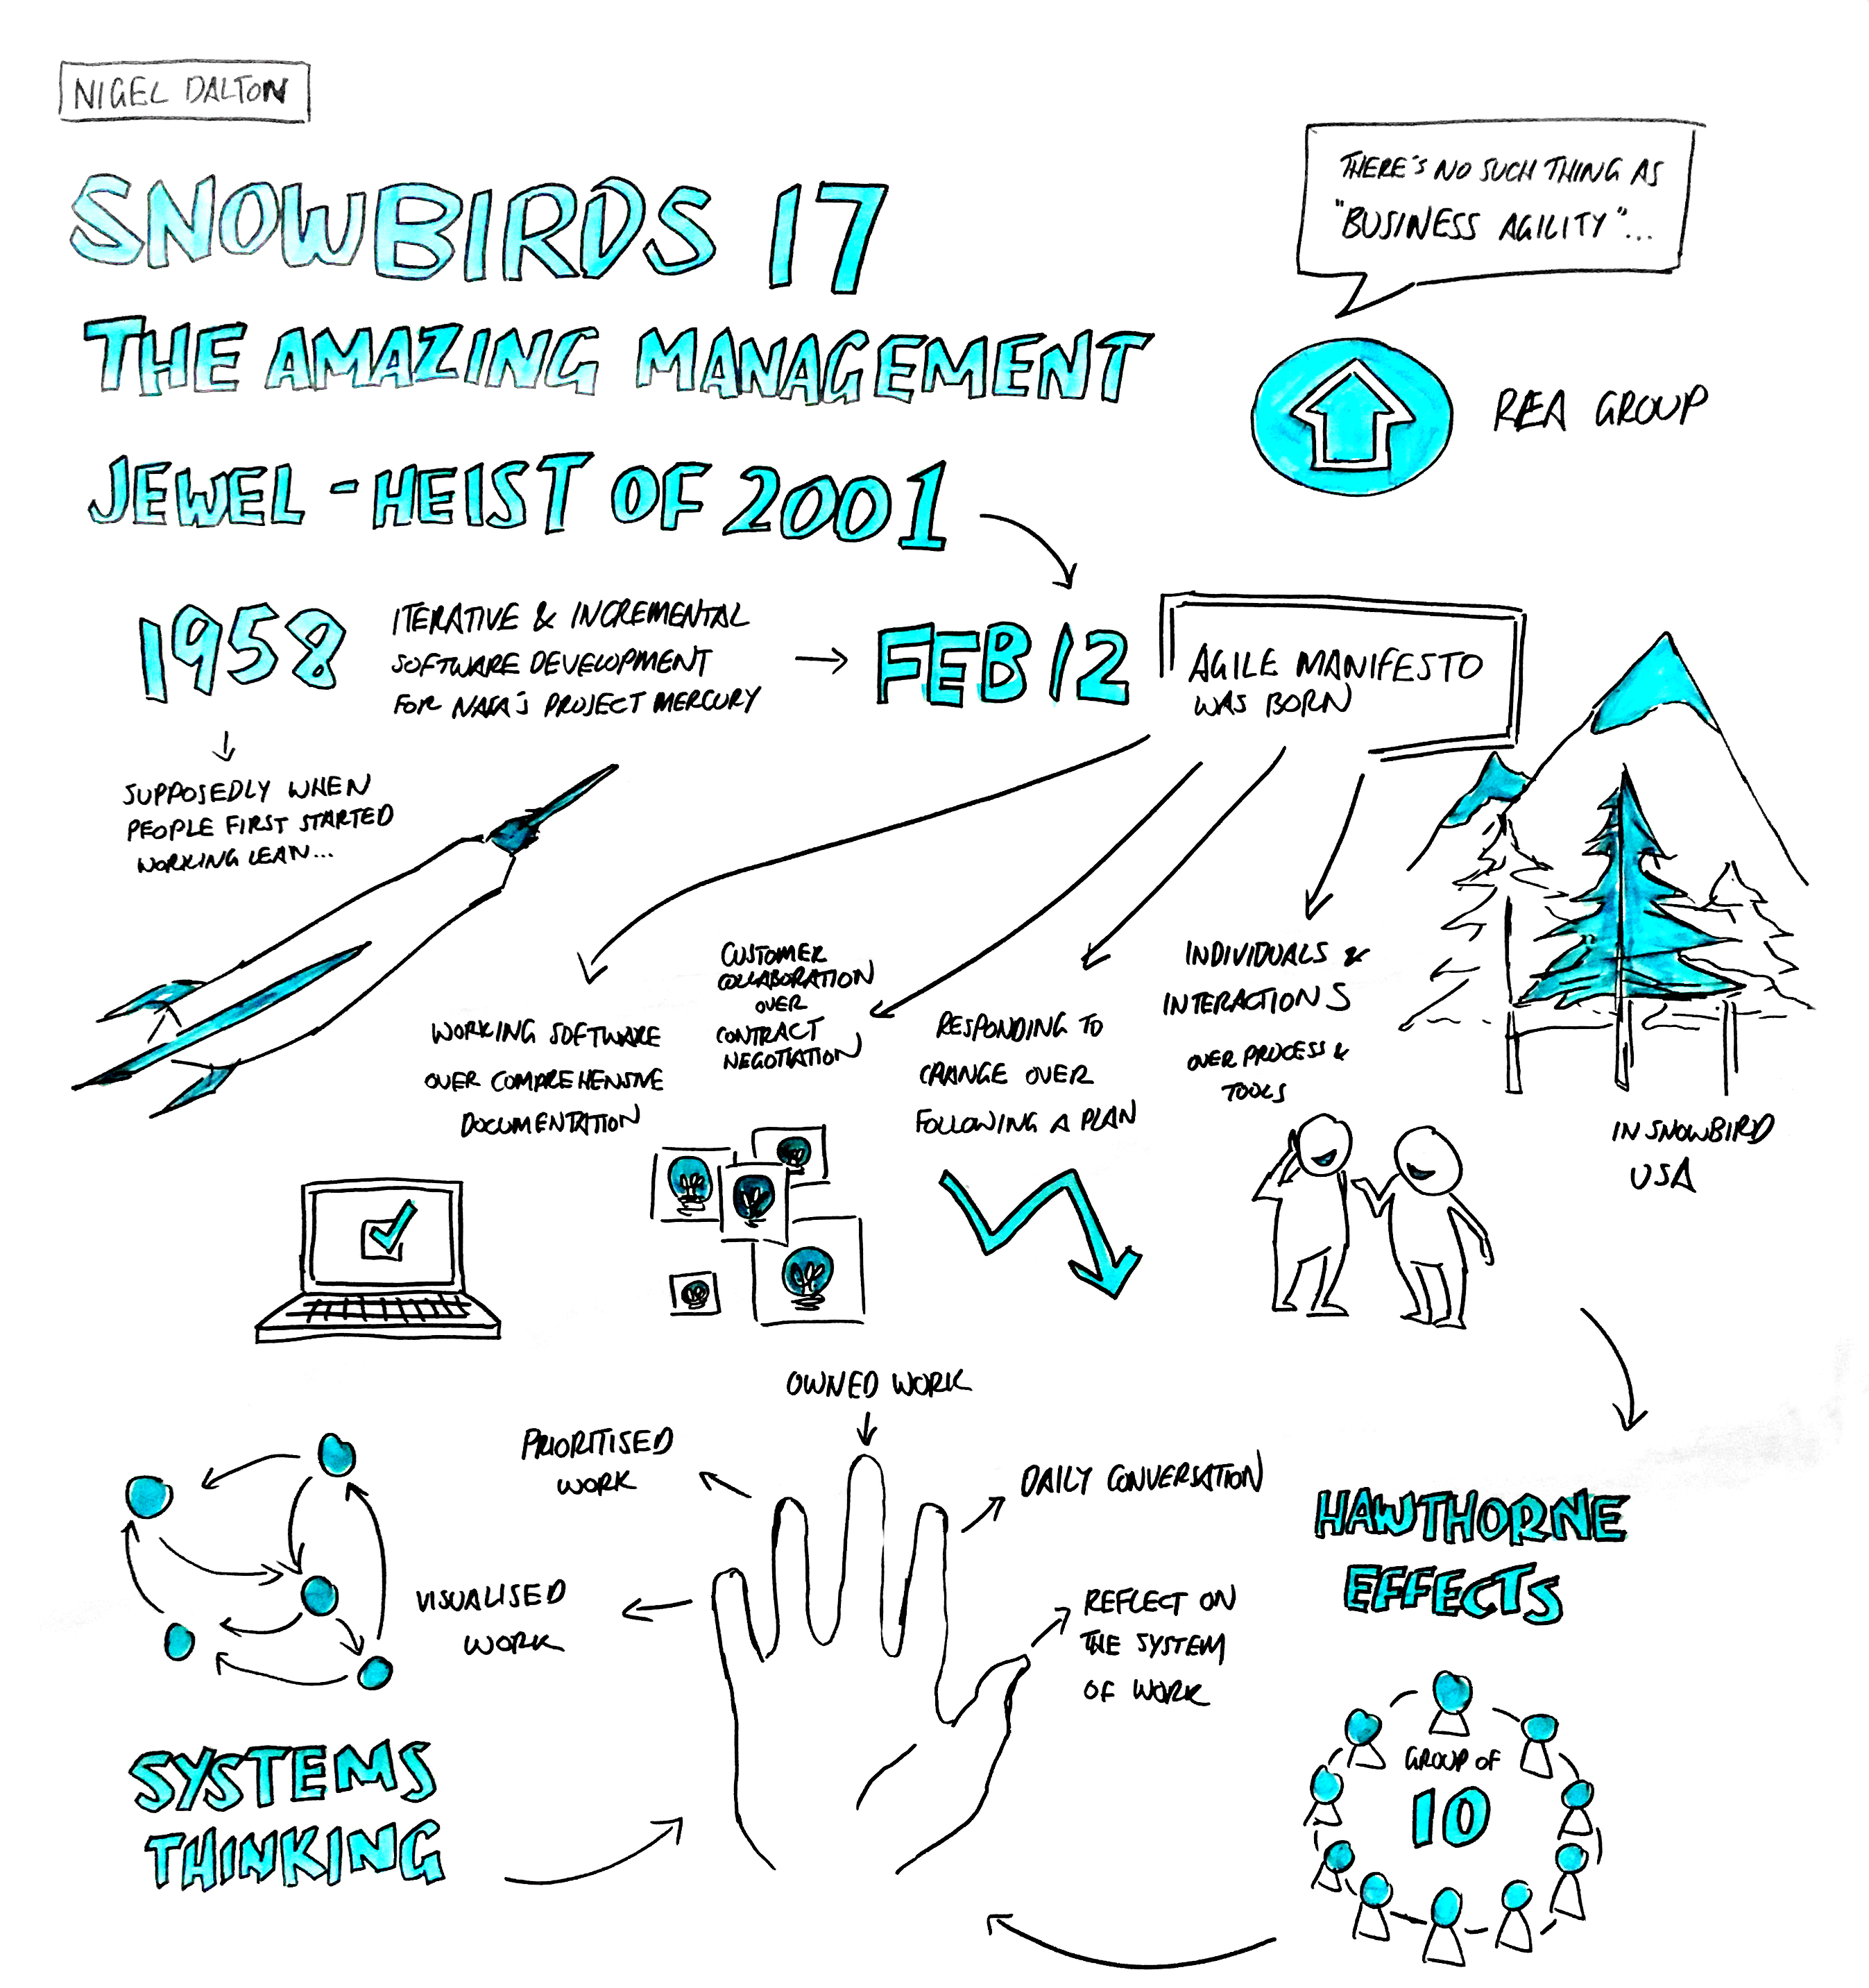 NIGEL DALTON
SNOWBIRDS 17
THE AMAZING MANAGEMENT
JEWEL - HEIST OF 2001
THERE'S NO SUCH THING AS
"BUSINESS AGILITY"...
REA GROUP
1958
ITERATIVE & INCREMENTAL
SOFTWARE DEVELOPMENT
FOR NASA'S PROJECT MERCURY
FEB 12
AGILE MANIFESTO
WAS BORN
SUPPOSEDLY WHEN
PEOPLE FIRST STARTED
WORKING LEAN...
WORKING SOFTWARE
OVER COMPREHENSIVE
DOCUMENTATION
CUSTOMER
COLLABORATION
OVER
CONTRACT
NEGOTIATION
RESPONDING TO
CHANGE OVER
FOLLOWING A PLAN
INDIVIDUALS &
INTERACTIONS
OVER PROCESS &
TOOLS
IN SNOWBIRD
USA
OWNED WORK
PRIORITISED
WORK
DAILY CONVERSATION
VISUALISED
WORK
REFLECT ON
THE SYSTEM
OF WORK
HAWTHORNE
EFFECTS
SYSTEMS
THINKING
GROUP OF
10